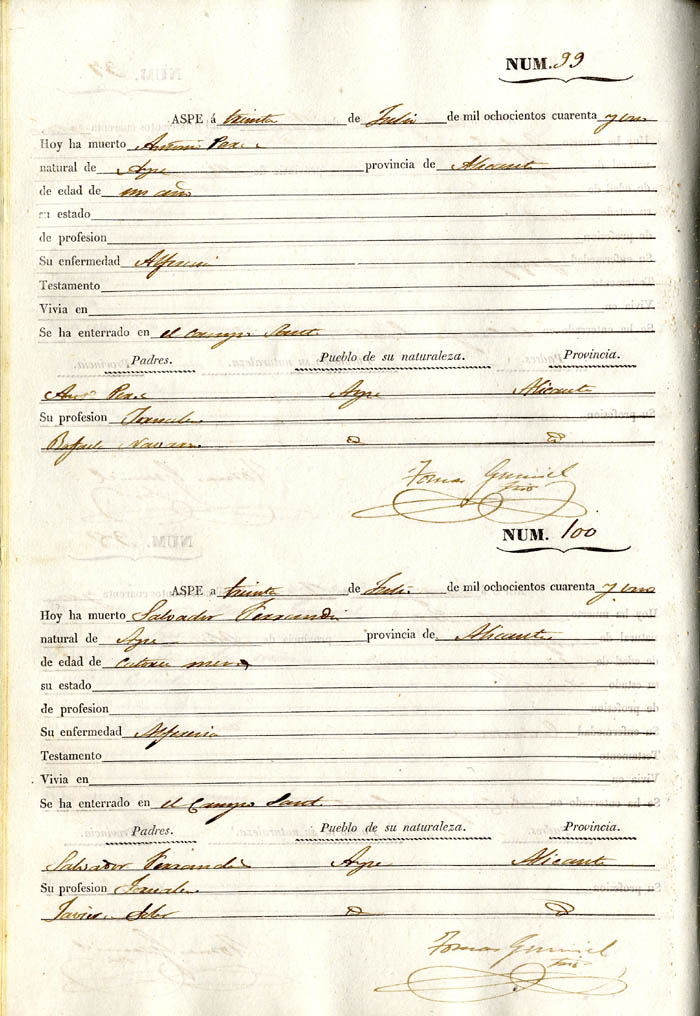 NUM. 99
ASPE á treinta de Julio de mil ochocientos cuarenta y uno
Hoy ha muerto Antonio Perez
natural de Aspe provincia de Alicante
de edad de un año
su estado
de profesion
Su enfermedad
Testamento
Vivia en
Se ha enterrado en el Campo Santo
Padres. Pueblo de su naturaleza. Provincia.
Anto Perez Aspe Alicante
Su profesion Jornalero
Rafaela Navarro
Tomas
NUM. 100
ASPE a treinta de Julio de mil ochocientos cuarenta y uno
Hoy ha muerto Salvador Ferrandiz
natural de Aspe provincia de Alicante
de edad de catorce meses
su estado
de profesion
Su enfermedad Alferecia
Testamento
Vivia en
Se ha enterrado en el Campo Santo
Padres. Pueblo de su naturaleza. Provincia.
Salvador Ferrandiz Aspe Alicante
Su profesion Jornalero
Tomas